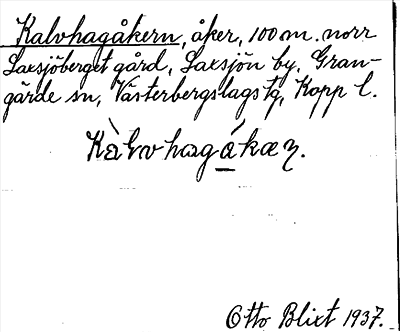 Kalvhagåkern, åker, 100 m. norr
Laxsjöberget gård, Laxsjön by, Gran-
gärde sn, Västerbergslags tg, Kopp l.
Kàlvhagákæɳ.
Otto Blixt 1937.